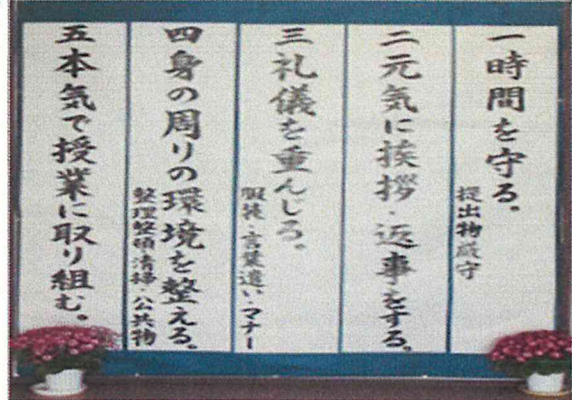 一時間を守る。
提出物厳守
二元気に挨拶・返事をする。
三礼儀を重んじる。
服装・言葉遣い・マナー
四身の周りの環境を整える。
整理整頓・清掃・公共物
五本気で授業に取り組む。